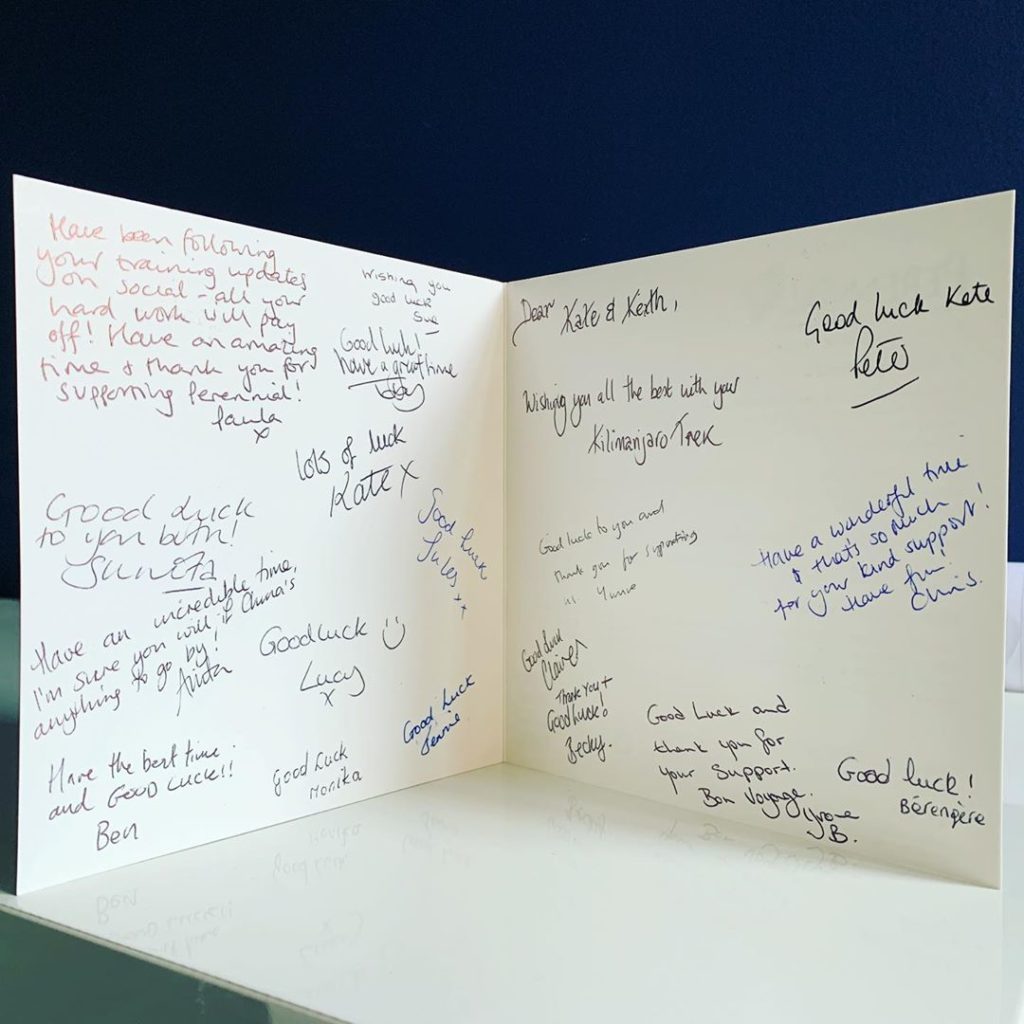 Have been following
your training updates
on social - all your
hard work will pay
off! Have an amazing
time & thank you for
supporting Perennial!
Paula
x
Wishing you
good luck
Sue
Good luck!
have a great time
Lots of luck
Kate x
Good Luck
to you both!
Suneta
Good luck
Jules xx
Have an incredible time,
I'm sure you will, if China's
anything to go by!
Anita
Good luck
Lucy
x
Good Luck
Jennie
Have the best time
and GOOD LUCK!!
Ben
Good Luck
Monika
Dear Kate & Keith,
Wishing you all the best with your
Kilimanjaro Trek
Good luck Kate
Pete
Good luck to you and
thank you for supporting
us
Have a wonderful time
& thats so much
for your kind support!
Have fun!
Chris.
Good luck
Claire
Thank you +
Good luck!
Becky.
Good Luck and
thank you for
your support.
Bon Voyage.
B.
Good luck!
Bérengère